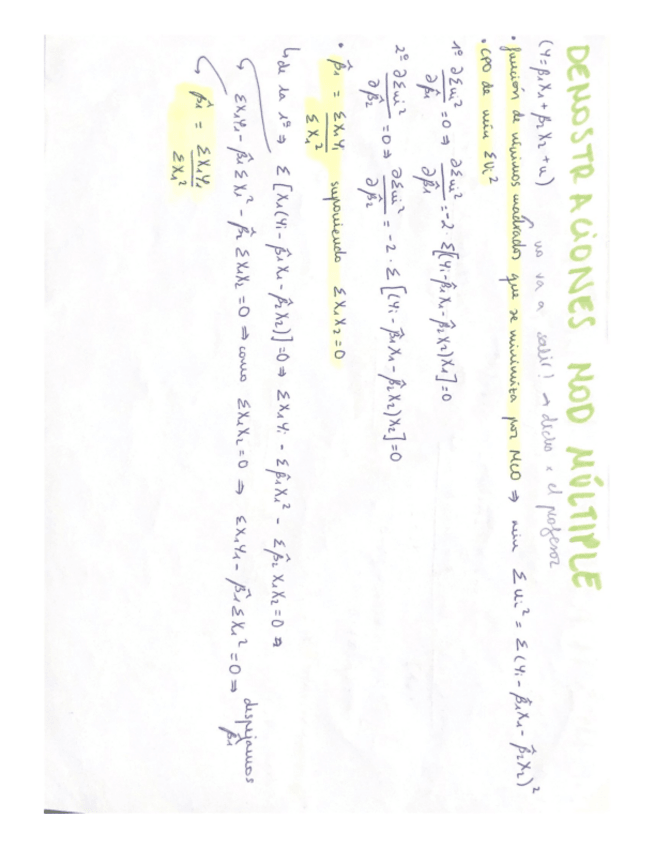 DEMOSTRACIONES MOD MÚLTIPLE
(Y=β₁X₁+β₂X₂+u) no va a salir! → dicho x el profesor
• función de mínimos cuadrados que se minimiza por MCO ⇒ min Σui² = Σ(Yi-β̂₁X₁-β̂₂X₂)²
• CPO de min Σui²
1º ∂Σui²/∂β̂₁ =0 ⇒ ∂Σui²/∂β̂₁ =-2·Σ[(Yi-β̂₁X₁-β̂₂X₂)X₁]=0
2º ∂Σui²/∂β̂₂ =0 ⇒ ∂Σui²/∂β̂₂ =-2·Σ[(Yi-β̂₁X₁-β̂₂X₂)X₂]=0
• β̂₁ = ΣX₁Y₁/ΣX₁² suponiendo ΣX₁X₂=0
↳ de la 1º ⇒ Σ[X₁(Yi-β̂₁X₁-β̂₂X₂)]=0 ⇒ ΣX₁Yi - Σβ̂₁X₁² - Σβ̂₂X₁X₂=0 ⇒
ΣX₁Y₁-β̂₁ΣX₁²-β̂₂ΣX₁X₂=0 ⇒ como ΣX₁X₂=0 ⇒ ΣX₁Y₁-β̂₁ΣX₁²=0 ⇒ despejamos β̂₁
β̂₁ = ΣX₁Y₁/ΣX₁²